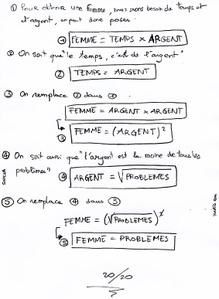 ① Pour obtenir une Femme, nous avons besoin de temps et
d'argent, on peut donc poser :
① FEMME = TEMPS x ARGENT
② On sait que "le temps, c'est de l'argent"
② TEMPS = ARGENT
③ On remplace ② dans ①
FEMME = ARGENT x ARGENT
③ FEMME = (ARGENT)²
④ On sait aussi que "l'argent est la racine de tous les
problèmes"
④ ARGENT = √PROBLEMES
⑤ On remplace ④ dans ③
FEMME = (√PROBLEMES)²
⑤ FEMME = PROBLEMES
20/20